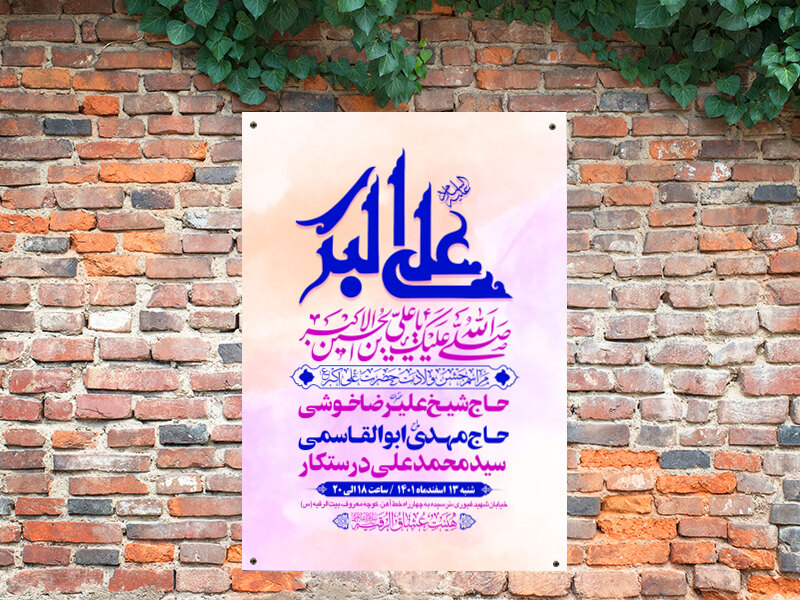 علی اکبر
علیه السلام
صلی الله علیک یا علی بن الحسین الاکبر
مراسم جشن ولادت حضرت علی اکبر ع
حاج شیخ علیرضا خوشی
حاج مهدی ابوالقاسمی
سید محمدعلی درستکار
شنبه ۱۳ اسفندماه ۱۴۰۱ / ساعت ۱۸ الی ۲۰
خیابان شهید غیوری، نرسیده به چهار راه خط آهن، کوچه معروف، بیت الرقیه (س)
هیئت عشاق الرقیه